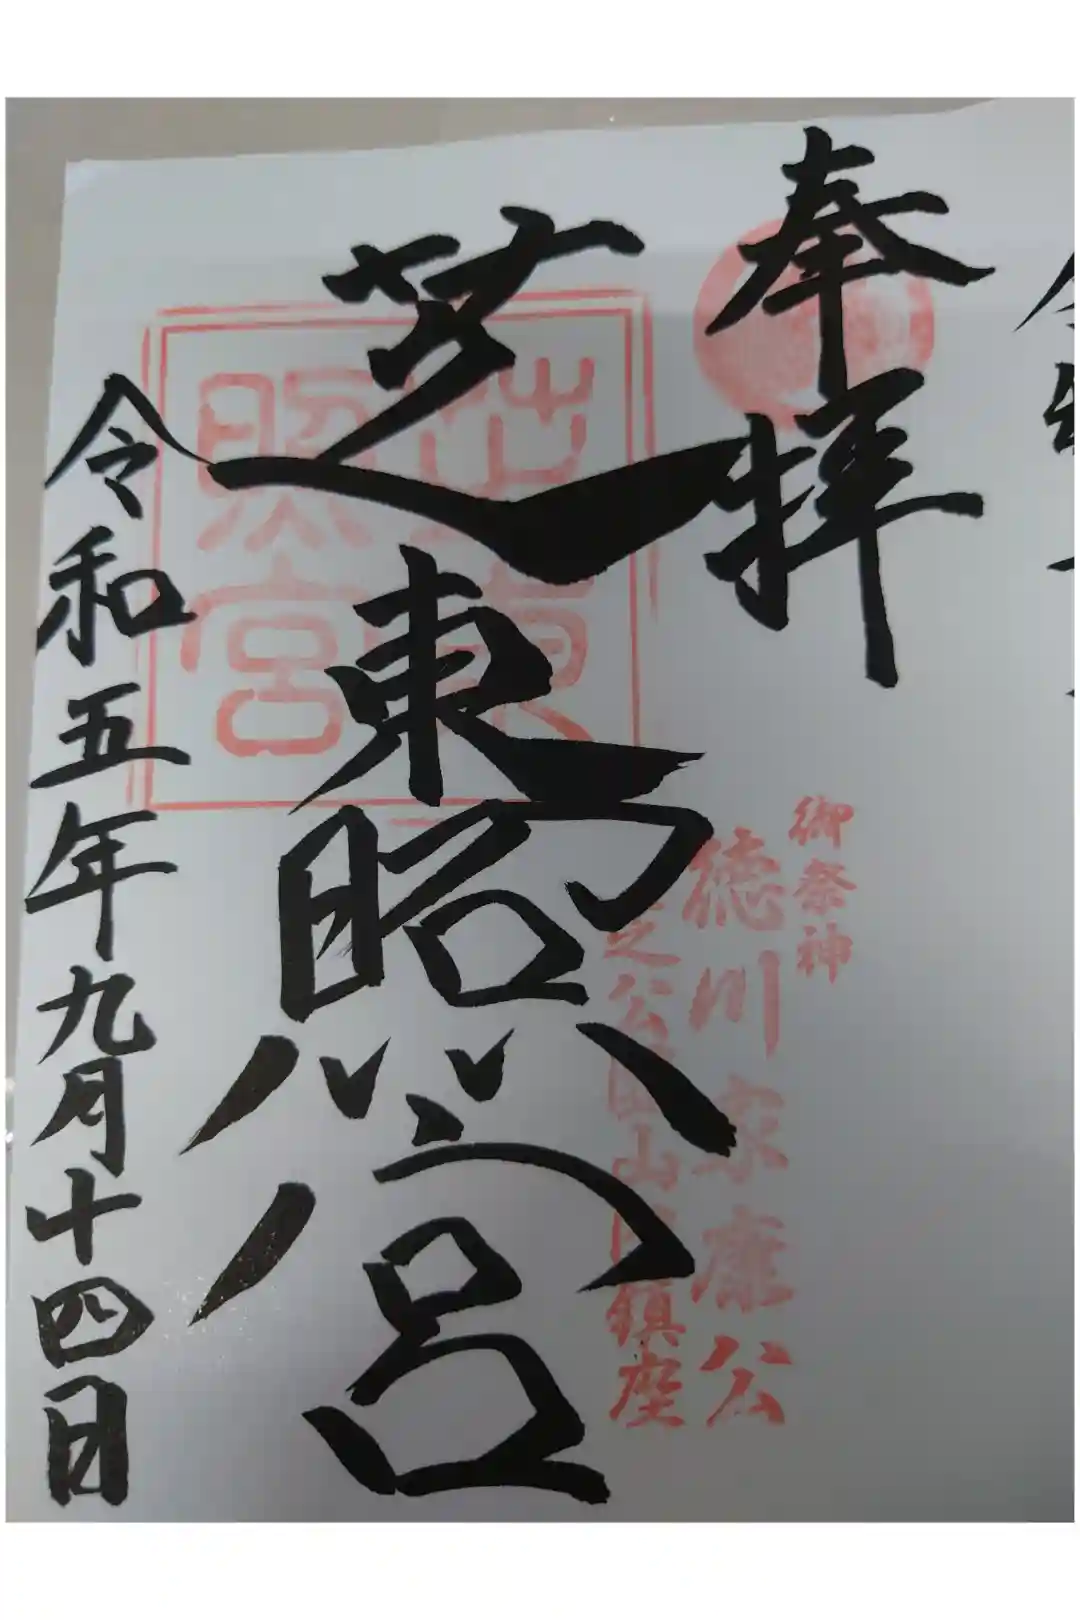 奉拝
御祭神
徳川家康公
芝東照宮
芝東照宮
鎮座
令和五年九月十四日